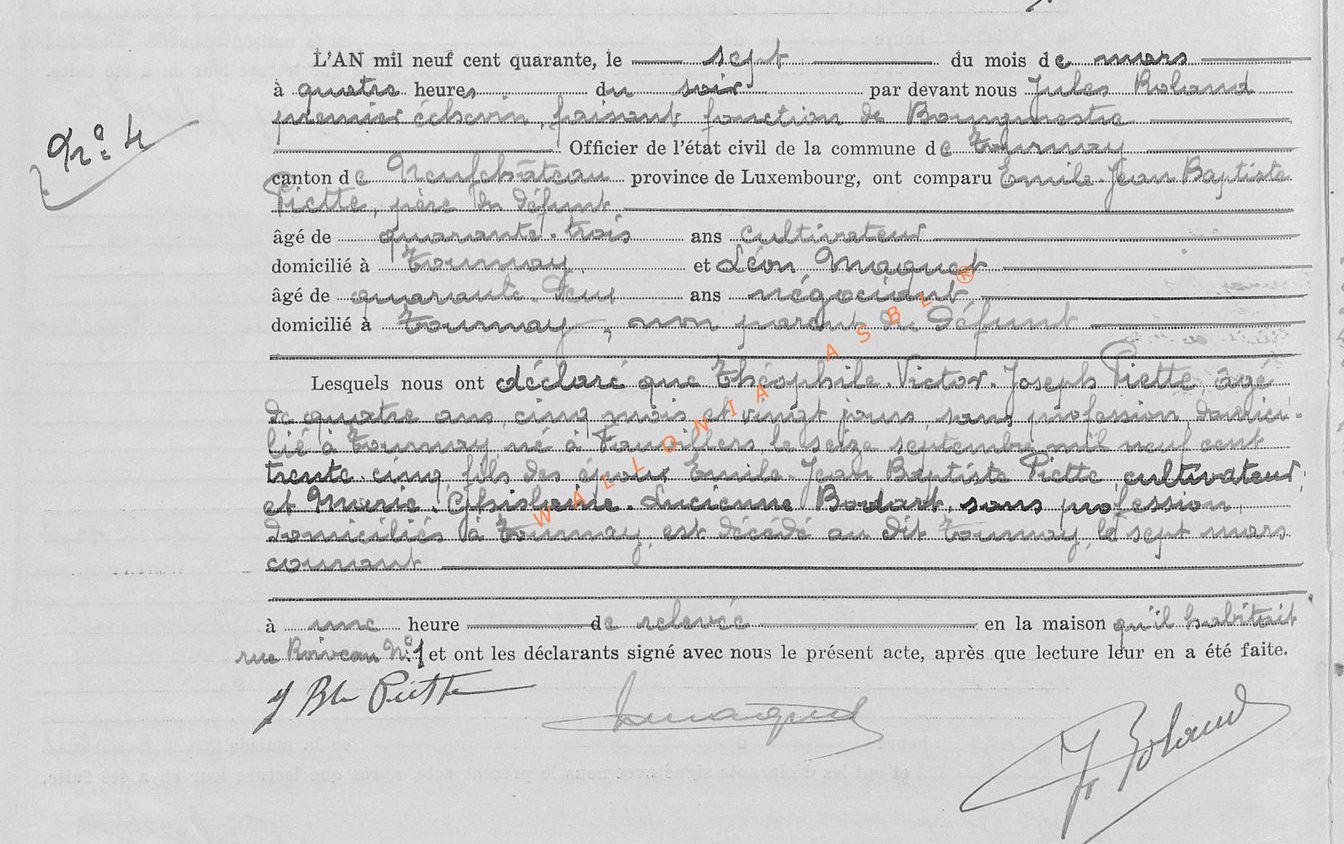 L'AN mil neuf cent quarante, le sept du mois de mars
à quatre heures du soir par devant nous Jules Roland
premier échevin, faisant fonction de Bourgmestre
Officier de l'état civil de la commune de Tournay
N° 4
canton de Neufchâteau province de Luxembourg, ont comparu Emile-Jean Baptiste
Piette, père du défunt
âgé de quarante-trois ans cultivateur
domicilié à Tournay, et Léon Maquet
âgé de quarante-deux ans négociant
domicilié à Tournay, non parent du défunt
Lesquels nous ont déclaré que Théophile-Victor-Joseph Piette, âgé
de quatre ans, cinq mois et vingt jours, sans profession, domici-
lié à Tournay, né à Fauvillers le seize septembre mil neuf cent
trente-cinq, fils des époux Emile-Jean Baptiste Piette, cultivateur,
et Marie-Ghislaine-Lucienne Bodart, sans profession,
domiciliés à Tournay, est décédé au dit Tournay, le sept mars
courant
à une heure de relevée en la maison qu'il habitait
rue N° 1 et ont les déclarants signé avec nous le présent acte, après que lecture leur en a été faite.
J Bte Piette
Lmaquet
J. Roland
WALLONIA ASBL ®